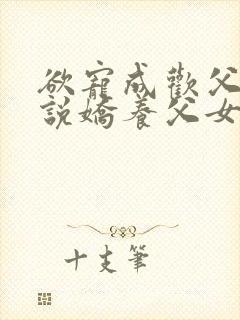 欲寵成歡父
說嬌養父女
十支筆